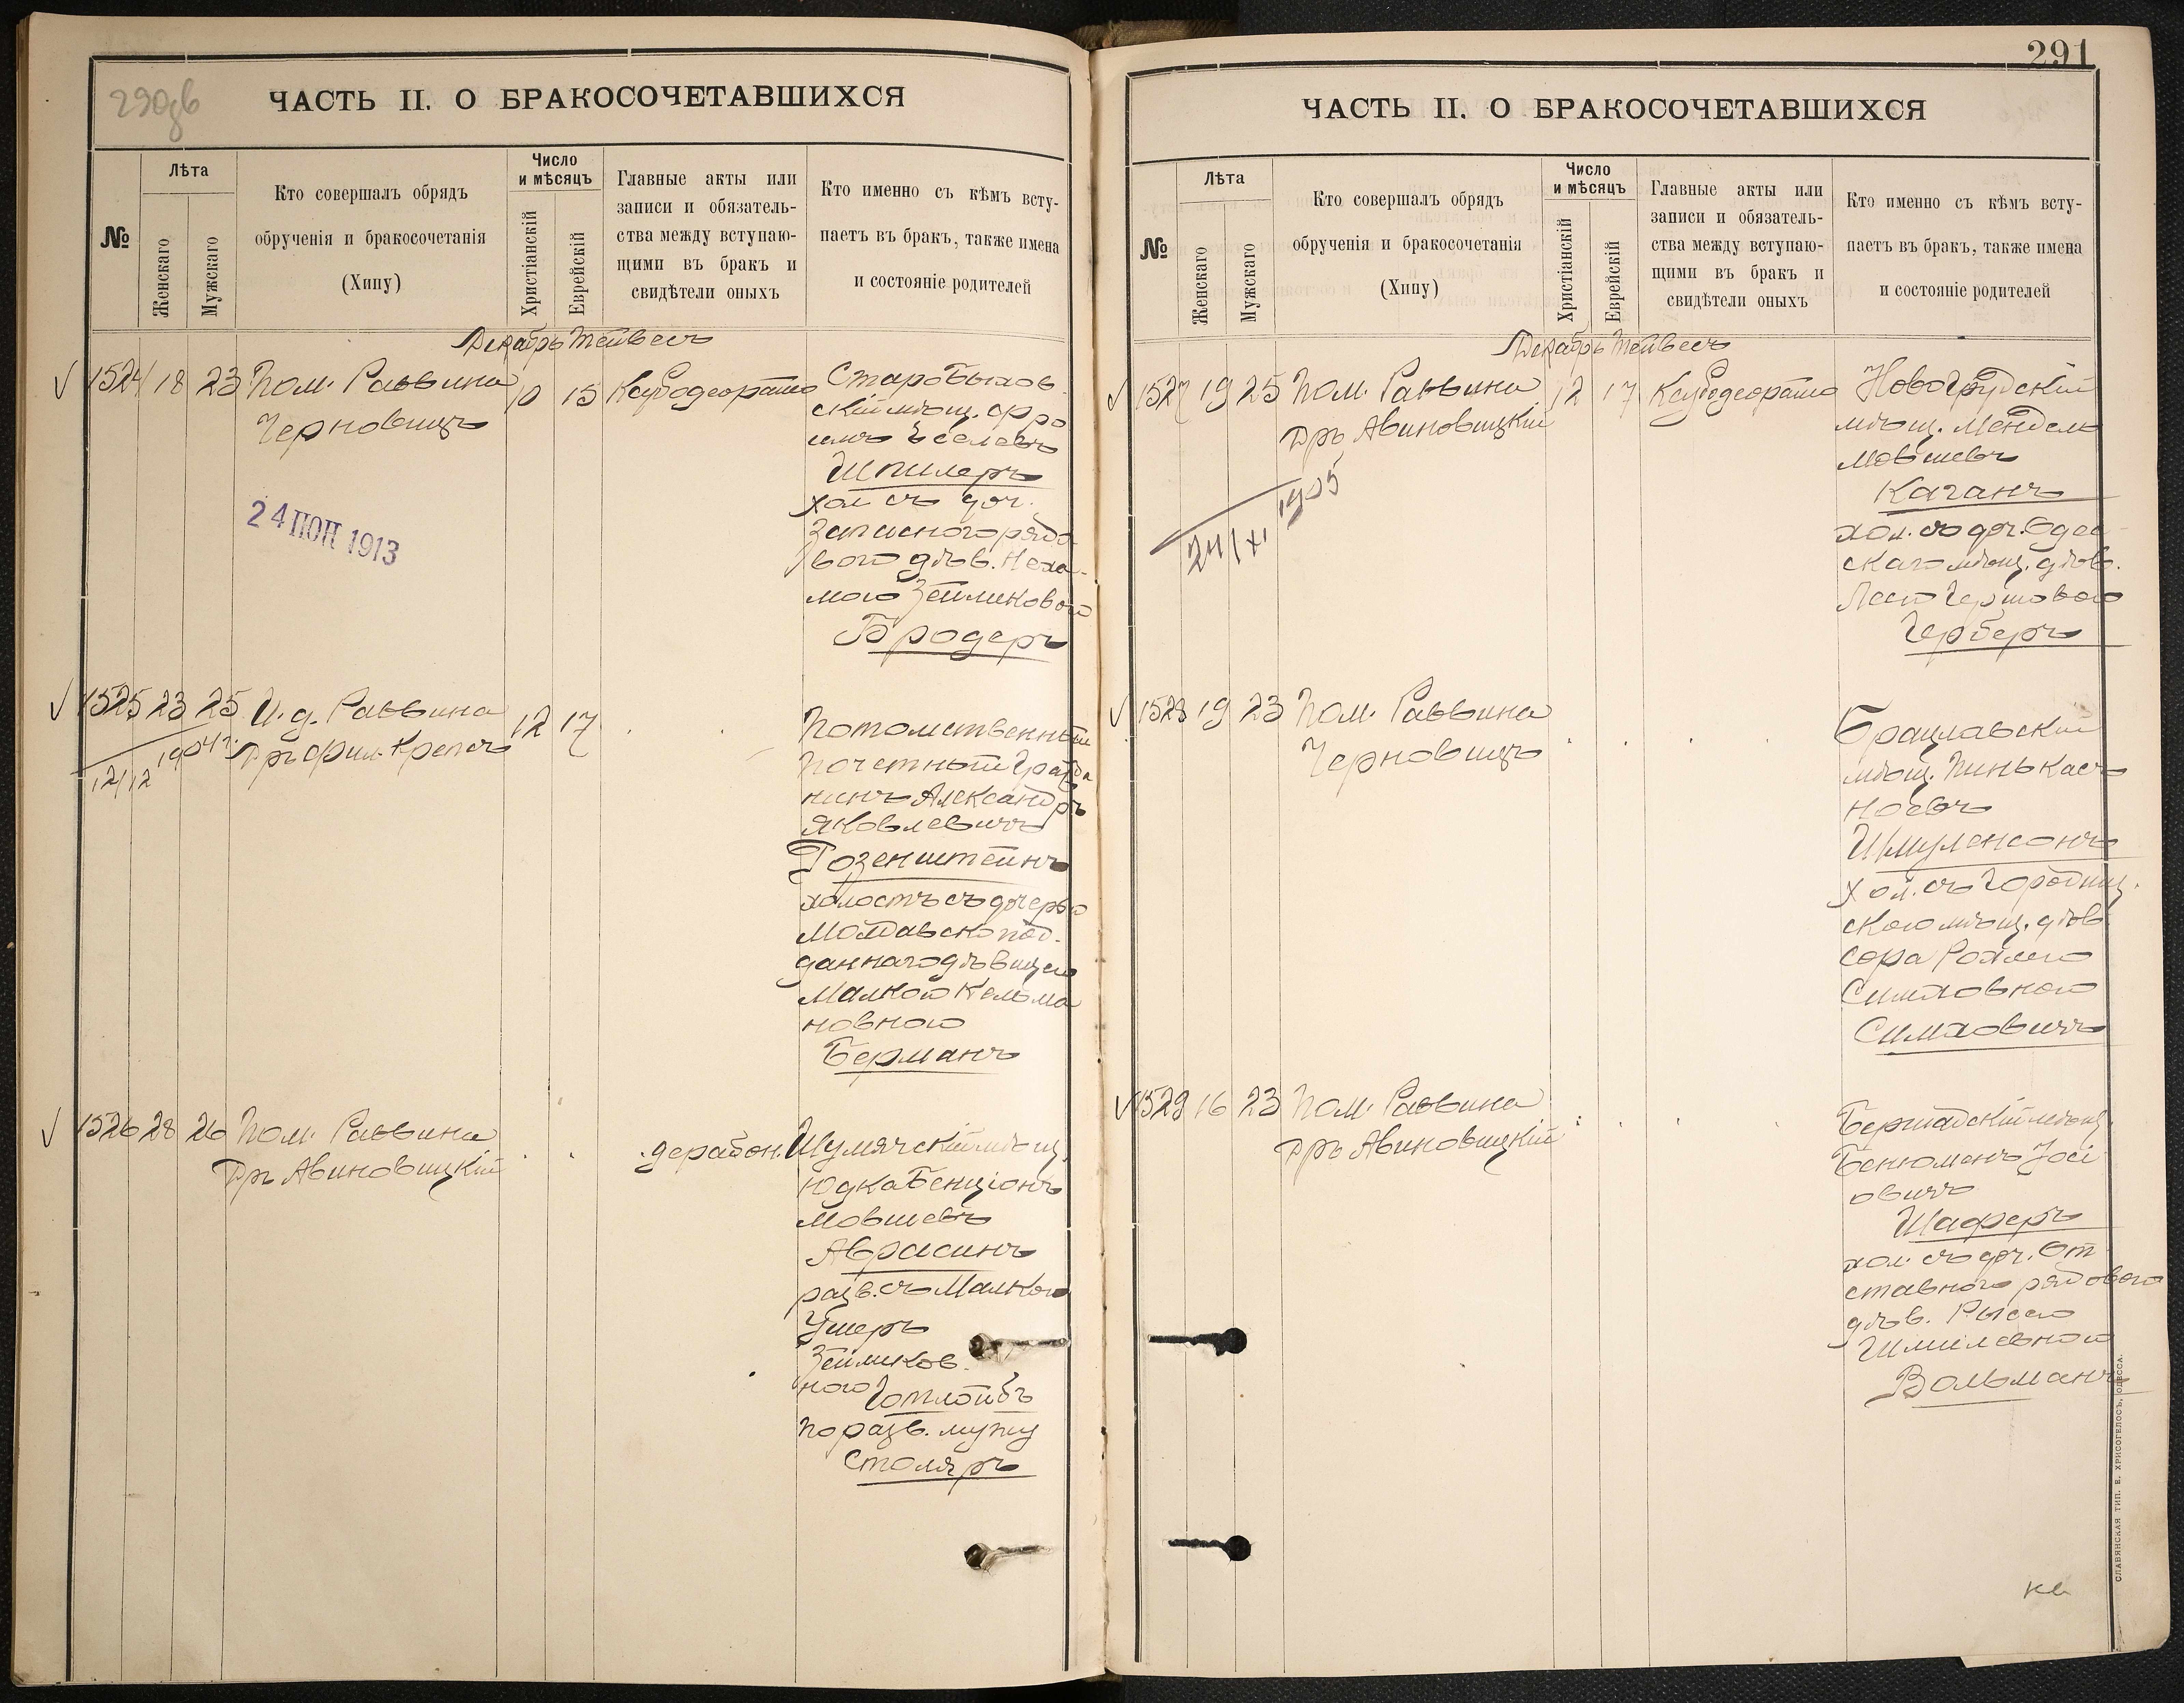 290 об
ЧАСТЬ II. О БРАКОСОЧЕТАВШИХСЯ
№
Лѣта
Женскаго
Мужскаго
Кто совершалъ обрядъ
обрученія и бракосочетанія
(Хипу)
Число
и мѣсяцъ
Христіанскій
Еврейскій
Главные акты или
записи и обязатель-
ства между вступаю-
щими въ бракъ и
свидѣтели оныхъ
Кто именно съ кѣмъ всту-
паетъ въ бракъ, также имена
и состояніе родителей
Декабрь Тейвесъ
1524 18 23 Пом. Раввина
Черновицъ
10 15
24 1913
Старобыхов
скій мѣщ. Фро
имъ
Шпилеръ
хол съ доч.
Запасного рядо
вого дѣв. Неха-
мою Зейликовою
Бродеръ
1525 23 25 И. д. Раввина
Дръ Фил. Крепсъ
12 17
1904 г.
12/12
Потомственный
Почетный Гражда
нинъ Александръ
Яковлевичъ
Розенштейнъ
холостъ съ дочерью
Молдавско под-
даннаго дѣвицею
Малкою Кельма
новною
Берманъ
1526 28 26 Пом. Раввина
Дръ Авиновицкій
дерабон.
Шумячскій мѣщ.
Юдка Бенціонъ
Мовшевъ
Аврасинъ
разв. съ Малкою
Ушеръ
Зейликов
ною Готлойбъ
по разв. мужу
Столяръ
291
ЧАСТЬ II. О БРАКОСОЧЕТАВШИХСЯ
№
Лѣта
Женскаго
Мужскаго
Кто совершалъ обрядъ
обрученія и бракосочетанія
(Хипу)
Число
и мѣсяцъ
Христіанскій
Еврейскій
Главные акты или
записи и обязатель-
ства между вступаю-
щими въ бракъ и
свидѣтели оныхъ
Кто именно съ кѣмъ всту-
паетъ въ бракъ, также имена
и состояніе родителей
Декабрь Тейвесъ
1527 19 25 Пом. Раввина
Дръ Авиновицкій
12 17
1905
24/XI
Новогрудскій
мѣщ. Мендель
Мовшевъ
Каганъ
хол. съ доч. Одес-
скаго мѣщ. дѣв.
Леею Гершовою
Герберъ
1528 19 23 Пом. Раввина
Черновицъ
Брацлавскій
мѣщ. Пинькасъ
Ноевъ
Шмуленсонъ
хол. съ Городищ.
скою мѣщ. дѣв
Сора Рохлею
Симховною
Симховичъ
1529 16 23 Пом. Раввина
Дръ Авиновицкій
Бершадскій мѣщ
Бенюменъ Іосі
овичъ
Шаферъ
хол. съ доч. От
ставного рядового
дѣв. Рысею
Шмилевною
Вольманъ
СЛАВЯНСКАЯ ТИП. Е. ХРИСОГЕЛОСЪ, ОДЕССА.